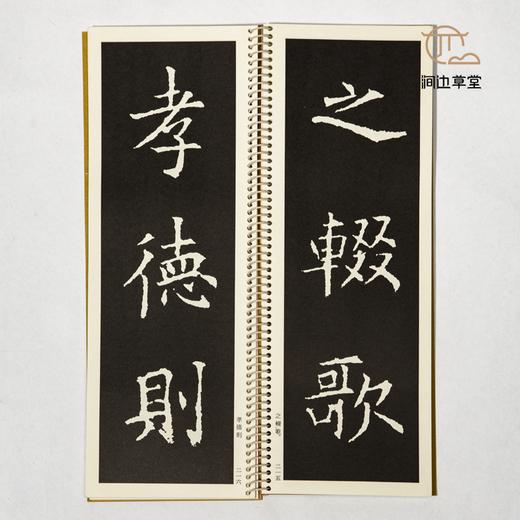 涧边草堂
之輟歌
之輟歌 二一五
孝德則
孝德則 二一六